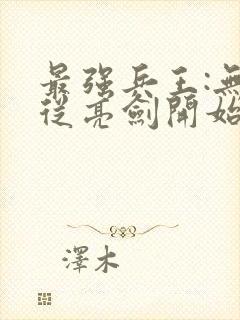 最強兵王:無
從亮劍開始
澤木